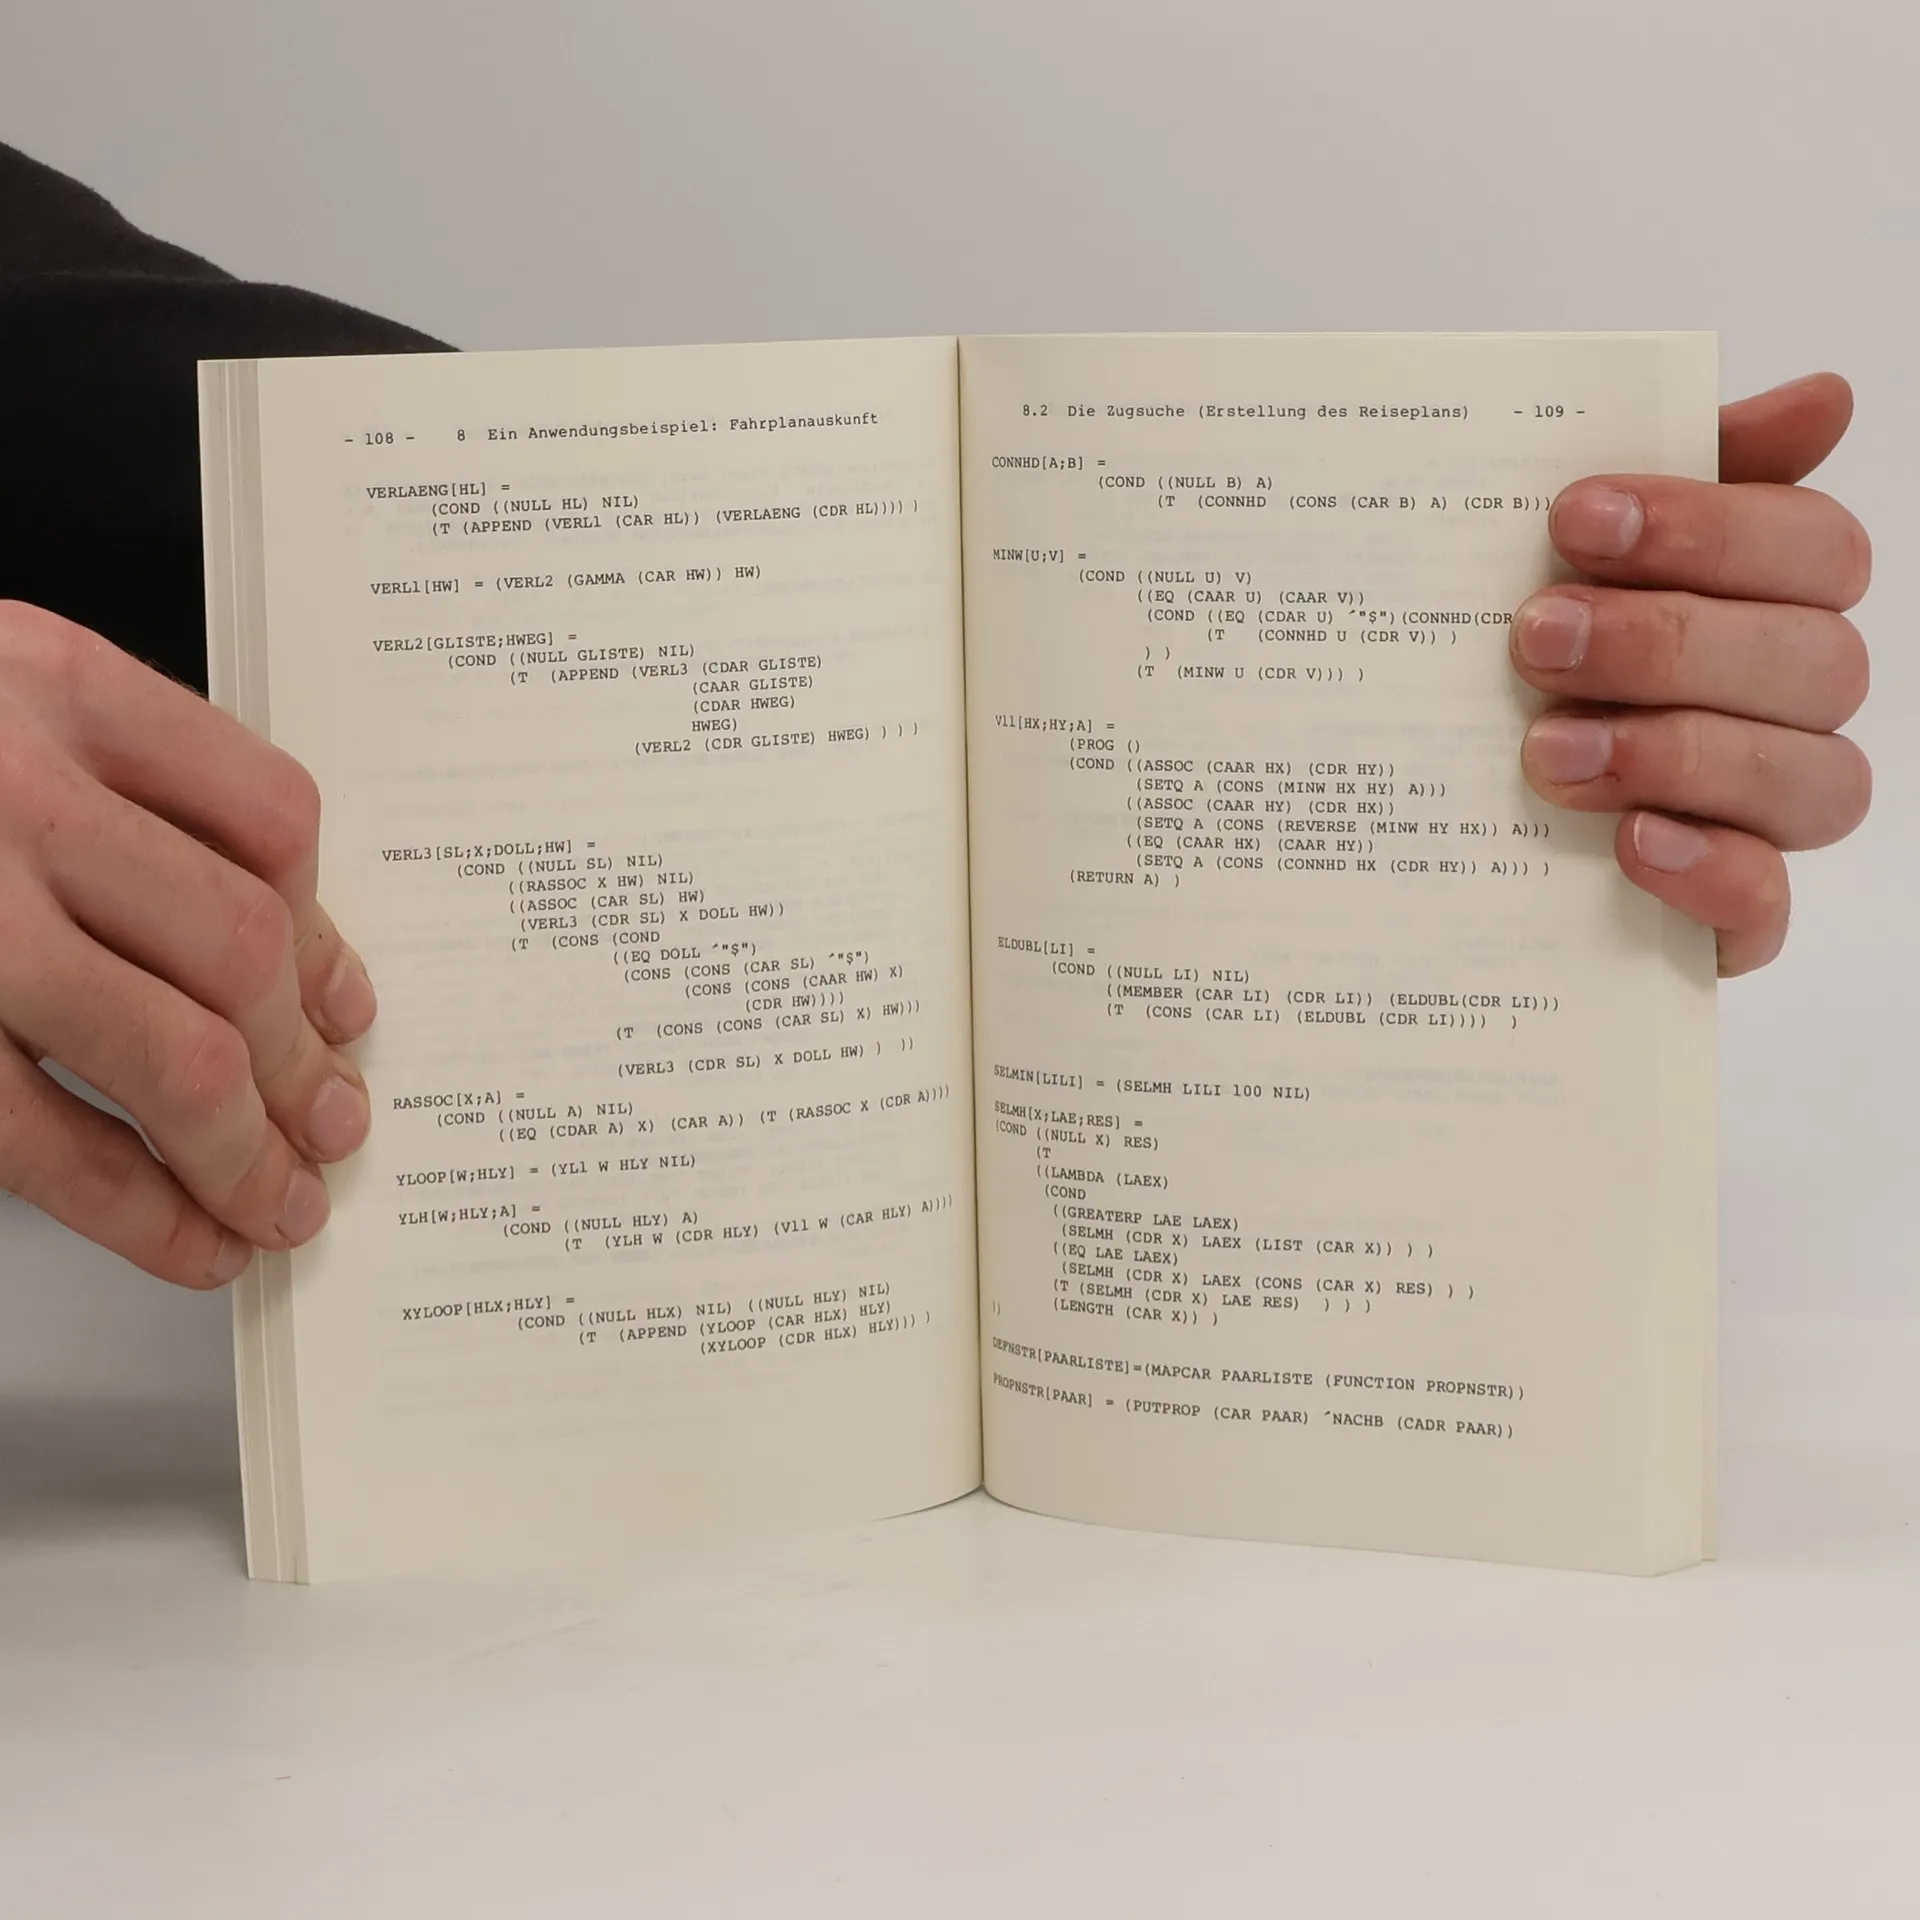 - 108 - 8 Ein Anwendungsbeispiel: Fahrplanauskunft
VERLAENG[HL] =
(COND ((NULL HL) NIL)
(T (APPEND (VERL1 (CAR HL)) (VERLAENG (CDR HL)))) )
VERL1[HW] = (VERL2 (GAMMA (CAR HW)) HW)
VERL2[GLISTE;HWEG] =
(COND ((NULL GLISTE) NIL)
(T (APPEND (VERL3 (CDAR GLISTE)
(CAAR GLISTE)
(CDAR HWEG)
HWEG)
(VERL2 (CDR GLISTE) HWEG) ) ) )
VERL3[SL;X;DOLL;HW] =
(COND ((NULL SL) NIL)
((RASSOC X HW) NIL)
((ASSOC (CAR SL) HW)
(VERL3 (CDR SL) X DOLL HW))
(T (CONS (COND
((EQ DOLL ^"$")
(CONS (CONS (CAR SL) ^"$")
(CONS (CONS (CAAR HW) X)
(CDR HW))))
(T (CONS (CONS (CAR SL) X) HW)))
(VERL3 (CDR SL) X DOLL HW) ) ))
RASSOC[X;A] =
(COND ((NULL A) NIL)
((EQ (CDAR A) X) (CAR A)) (T (RASSOC X (CDR A))))
YLOOP[W;HLY] = (YL1 W HLY NIL)
YLH[W;HLY;A] =
(COND ((NULL HLY) A)
(T (YLH W (CDR HLY) (V11 W (CAR HLY) A))))
XYLOOP[HLX;HLY] =
(COND ((NULL HLX) NIL) ((NULL HLY) NIL)
(T (APPEND (YLOOP (CAR HLX) HLY)
(XYLOOP (CDR HLX) HLY))) )
8.2 Die Zugsuche (Erstellung des Reiseplans) - 109 -
CONNHD[A;B] =
(COND ((NULL B) A)
(T (CONNHD (CONS (CAR B) A) (CDR B)))
MINW[U;V] =
(COND ((NULL U) V)
((EQ (CAAR U) (CAAR V))
(COND ((EQ (CDAR U) ^"$")(CONNHD(CDR
(T (CONNHD U (CDR V)) )
) )
(T (MINW U (CDR V))) )
V11[HX;HY;A] =
(PROG ()
(COND ((ASSOC (CAAR HX) (CDR HY))
(SETQ A (CONS (MINW HX HY) A)))
((ASSOC (CAAR HY) (CDR HX))
(SETQ A (CONS (REVERSE (MINW HY HX)) A)))
((EQ (CAAR HX) (CAAR HY))
(SETQ A (CONS (CONNHD HX (CDR HY)) A))) )
(RETURN A) )
ELDUBL[LI] =
(COND ((NULL LI) NIL)
((MEMBER (CAR LI) (CDR LI)) (ELDUBL(CDR LI)))
(T (CONS (CAR LI) (ELDUBL (CDR LI)))) )
SELMIN[LILI] = (SELMH LILI 100 NIL)
SELMH[X;LAE;RES] =
(COND ((NULL X) RES)
(T
((LAMBDA (LAEX)
(COND
((GREATERP LAE LAEX)
(SELMH (CDR X) LAEX (LIST (CAR X)) ) )
((EQ LAE LAEX)
(SELMH (CDR X) LAEX (CONS (CAR X) RES) ) )
(T (SELMH (CDR X) LAE RES) ) ) )
(LENGTH (CAR X)) )
))
DEFNSTR[PAARLISTE]=(MAPCAR PAARLISTE (FUNCTION PROPNSTR))
PROPNSTR[PAAR] = (PUTPROP (CAR PAAR) ^NACHB (CADR PAAR))